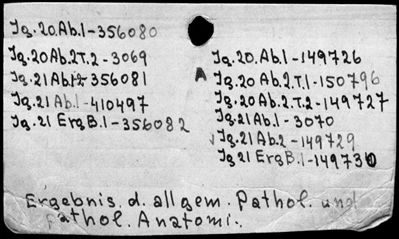 Jg.20.Ab.1-356080
Jg.20Ab.2T.2-3069
Jg.21Ab.1.2-356081
Jg.21Ab.1-410497
Jg.21 Erg B.1-356082
Jg.20.Ab.1-149726
A Jg.20 Ab.2.T.1-150796
Jg.20Ab.2.T.2-149727
Jg.21Ab.1-3070
√Jg.21Ab.2-149729
Jg 21 Erg B.1-149730
Ergebnis. d. allgem. Pathol. und
pathol. Anatomi.